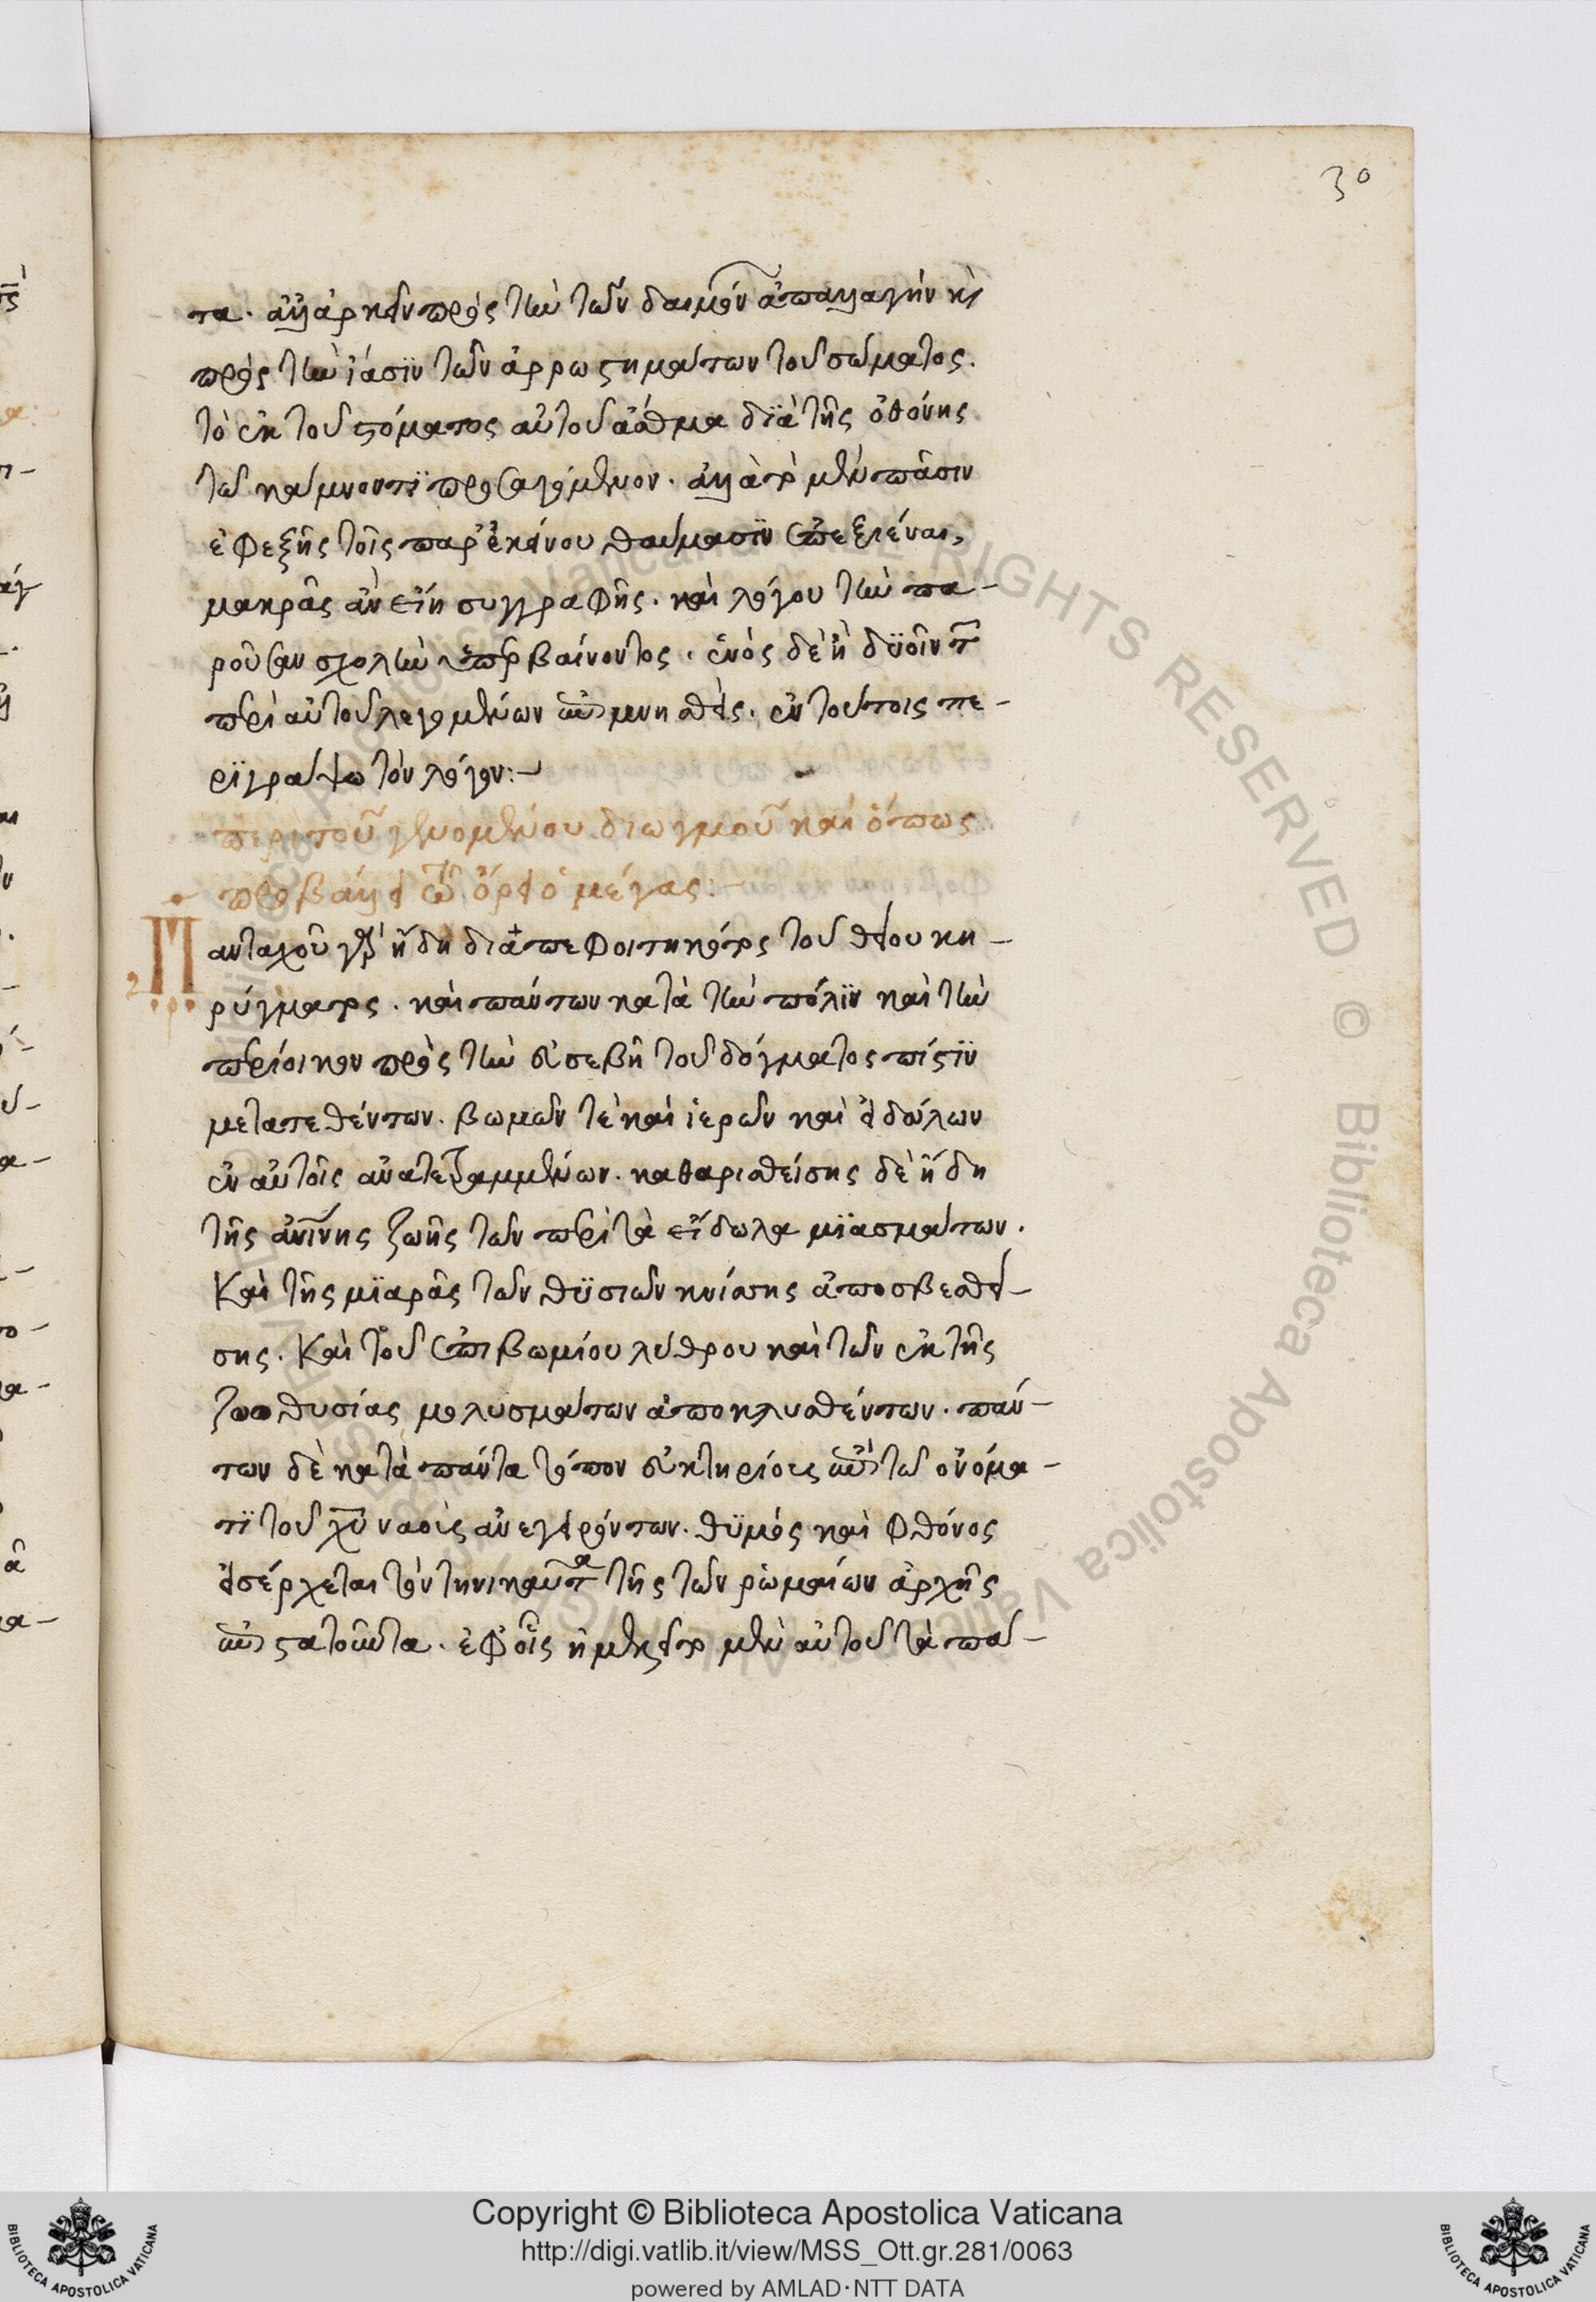 30
τα. ἀλλ' ἀρκεῖν πρὸς τὴν τῶν δαιμόνων ἀπαλλαγὴν καὶ
πρὸς τὴν ἰάσϊν τῶν ἀρρωστημάτων τοῦ σώματος.
τὸ ἐκ τοῦ στόματος αὐτοῦ ἄσθμα δϊὰ τῆς ὀθόνης
τῶ κάμνοντϊ προσαγόμενον. ἀλλὰ τὸ μὲν πᾶσιν
ἐφεξῆς τοῖς παρ' ἐκείνου θαύμασϊν ἐπεξιέναι,
μακρᾶς ἂν εἴη συγγραφῆς. καὶ λόγου τὴν πα-
ροῦσαν σχολὴν ὑπερβαίνοντος. ἑνὸς δὲ ἢ δϋοῖν τῶν
περὶ αὐτοῦ λεγομένων ἐπιμνησθεὶς. ἐν τούτοις πε-
ρϊγράψω τὸν λόγον:-
περὶ τοῦ γενομένου διωγμοῦ καὶ ὅπως
προβάλλει τῶ ὄρει ὁ μέγας:-
Πανταχοῦ γὰρ ἤδη διαπεφοιτηκότος τοῦ θείου κη-
ρύγματος. καὶ πάντων κατὰ τὴν πόλϊν καὶ τὴν
περίοικον πρὸς τὴν εὐσεβῆ τοῦ δόγματος πίστϊν
μετατεθέντων. βωμῶν τὲ καὶ ἱερῶν καὶ εἰδώλων
ἐν αὐτοῖς ἀνατετραμμένων. καθαρισθείσης δὲ ἤδη
τῆς ἀνίνης ζωῆς τῶν περὶ τὰ εἴδωλα μϊασμάτων.
Καὶ τῆς μϊαρᾶς τῶν θϋσιῶν κνίσης ἀποσβεσθεί-
σης. Καὶ τοῦ ἐπιβωμίου λύθρου καὶ τῶν ἐκ τῆς
ζωοθυσίας μολυσμάτων ἀποκλυσθέντων. πάν-
των δὲ κατὰ πάντα τόπον εὐκτηρίους ἐπὶ τῶ ὀνόμα-
τϊ τοῦ χῦ ναοὺς ἀνεγειρόντων. θϋμὸς καὶ φθόνος
εἰσέρχεται τὸν τηνικαῦτα τῆς τῶν ῥωμαίων ἀρχῆς
ἐπιστατοῦντα. ἐφ' οἷς ἠμελεῖτο μὲν αὐτοῦ τὰ πά-
Copyright © Biblioteca Apostolica Vaticana
http://digi.vatlib.it/view/MSS_Ott.gr.281/0063
powered by AMLAD·NTT DATA